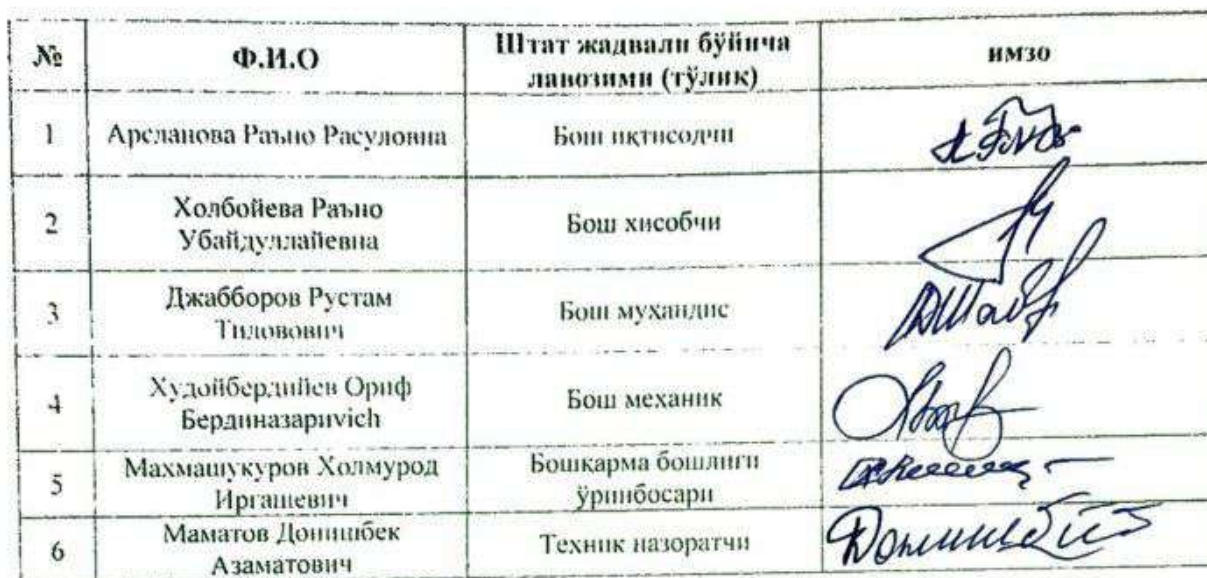 № Ф.И.О Штат жадвали бўйича лавозими (тўлиқ) имзо
1 Арсланова Раъно Расуловна Бош иқтисодчи
2 Холбойева Раъно Убайдуллайевна Бош хисобчи
3 Джабборов Рустам Тиловович Бош муҳандис
4 Худойбердийев Ориф Бердиназариvich Бош механик
5 Махмашукуров Холмурод Иргашевич Бошқарма бошлиғи ўринбосари
6 Маматов Донишбек Азаматович Техник назоратчи